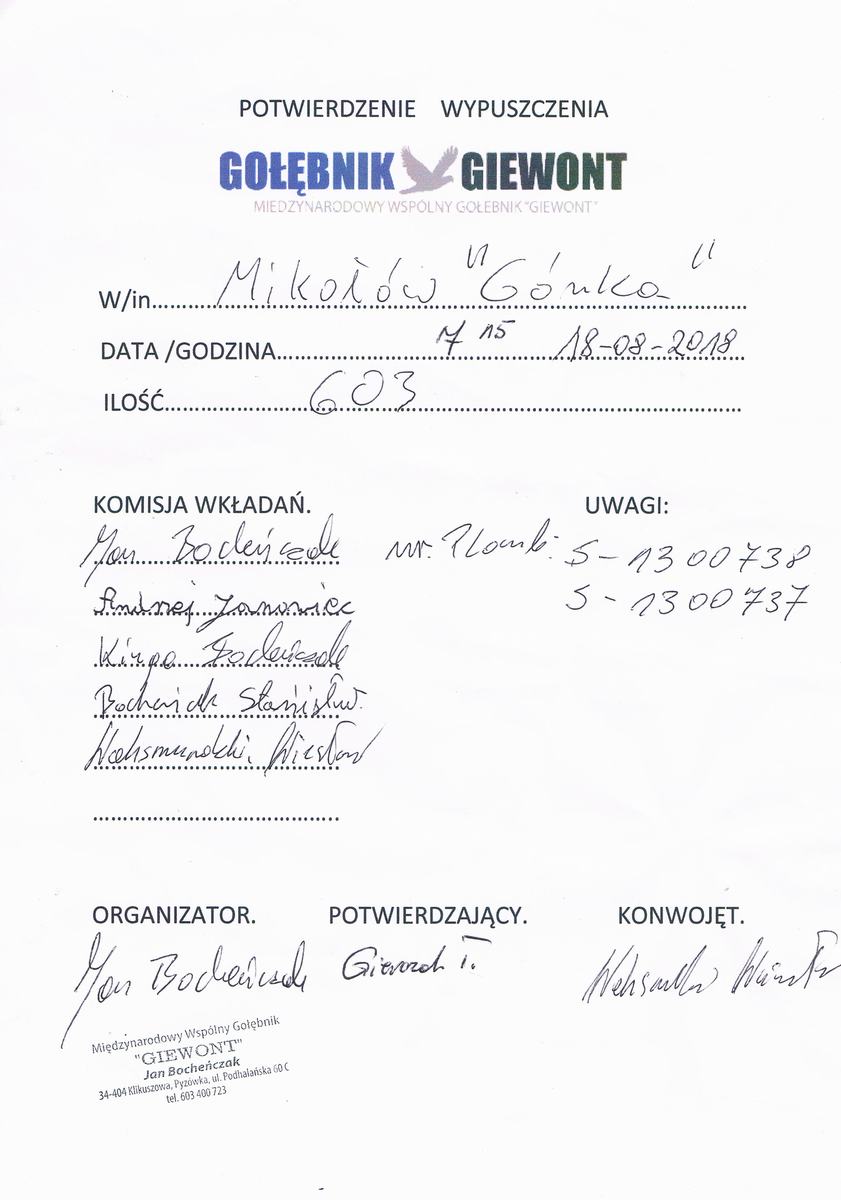 POTWIERDZENIE WYPUSZCZENIA
GOŁĘBNIK GIEWONT
MIĘDZYNARODOWY WSPÓLNY GOŁEBNIK "GIEWONT"
W/in. Mikołów "Górka"
DATA /GODZINA. 7 15 18-08-2018
ILOŚĆ. 603
KOMISJA WKŁADAŃ. UWAGI:
Jan Bocheńczak nr. Plomb: S-1300738
Andrzej Janowiec S-1300737
Kinga Bocheńczak
Stanisław.
Waksmundzki Wiesław
ORGANIZATOR. POTWIERDZAJĄCY. KONWOJĘT.
Jan Bocheńczak T.
Międzynarodowy Wspólny Gołębnik
"GIEWONT"
Jan Bocheńczak
34-404 Klikuszowa, Pyzówka, ul. Podhalańska 60 C
tel. 603 400 723